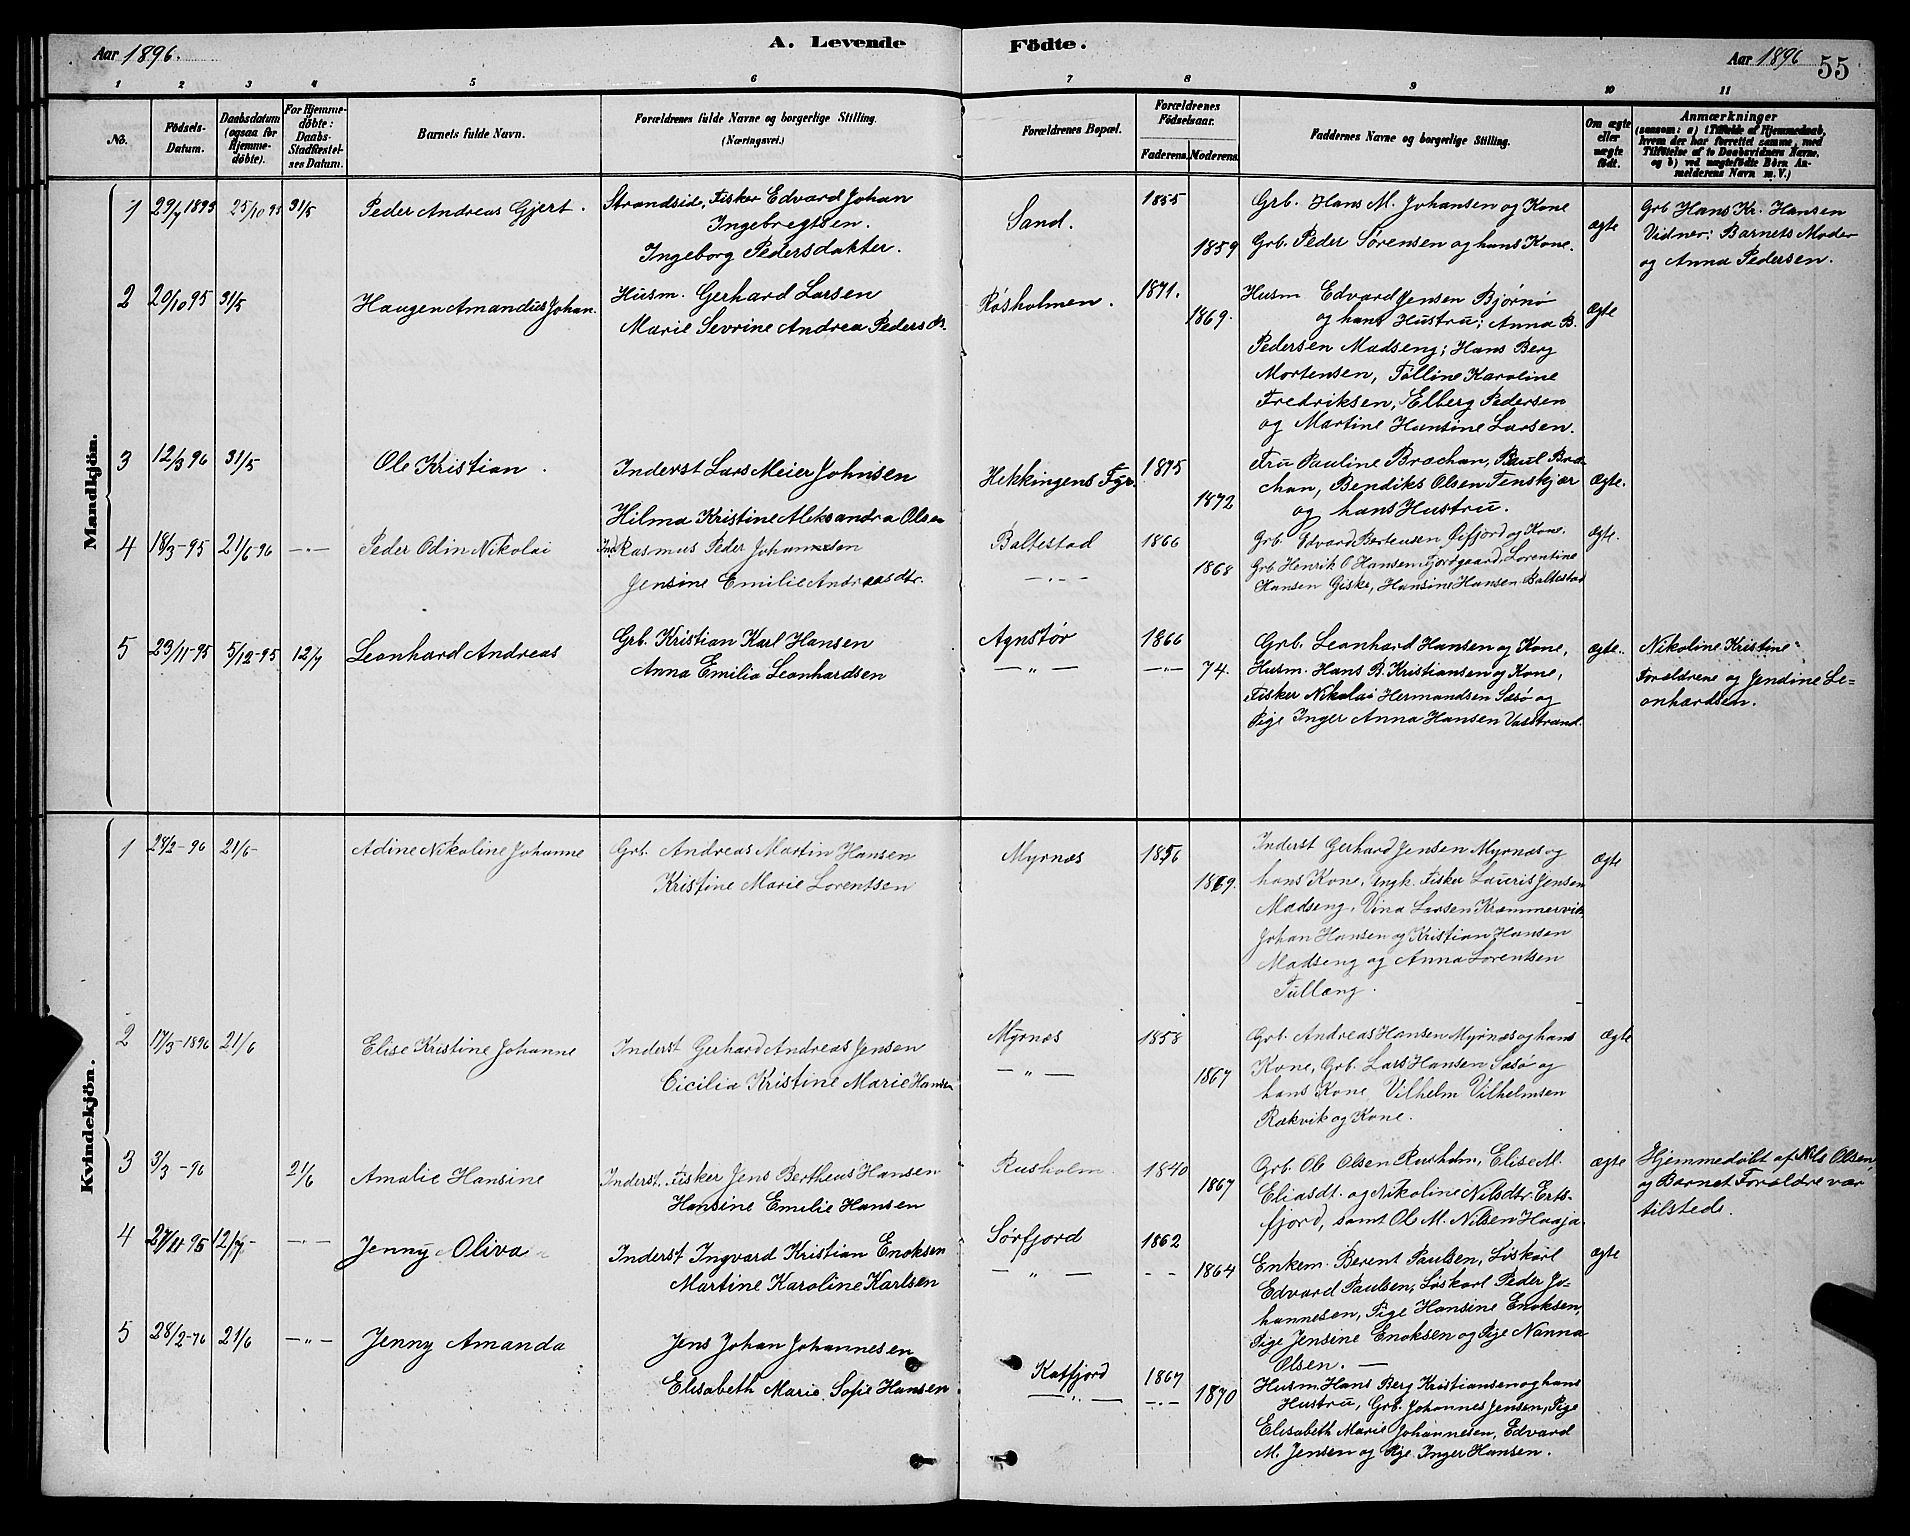 Aar 1896.
A. Levende
Födte.
Aar 1896
55
1 2 3 4 5 6 7 8 9 10 11
No.
Födsels-
Datum.
Daabsdatum
(ogsaa for
Hjemme-
döbte).
For Hjemme-
döbte:
Daabs-
Stadfæstel-
ses Datum.
Barnets fulde Navn.
Forældrenes fulde Navne og borgerlige Stilling.
(Næringsvei.)
Forældrenes Bopæl.
Forældrenes
Födselsaar.
Faderens. Moderens.
Faddernes Navne og borgerlige Stilling.
Om ægte
eller
uægte
födt.
Anmærkninger
(saasom: a) i Tilfælde af Hjemmedaab,
hvem der har forrettet samme, med
Tilföielse af to Daabsvidners Navne,
og b) ved uægtefödte Börn An-
melderens Navn m. V.)
Mandkjön.
1 29/7 1895 25/10 95 31/5 Peder Andreas Gjert.
Strandsid. Fisker Edvard Johan
Ingebregtsen.
Ingeborg Pedersdatter.
Sand.
1855
1859
Grb. Hans M. Johansen og Kone
Grb. Peder Sørensen og hans Kone.
ægte
Grb Hans Kr. Hansen
Vidner: Barnets Moder
og Anna Pedersen.
2 20/10 95 31/5 Haugen Amandus Johan.
Husm. Gerhard Larsen
Marie Sevrine Andrea Peders D.
Røsholmen.
1871.
1869.
Husm Edvard Jensen Bjørnø
og hans Hustru; Anna B.
Pedersen Madseng; Hans Berg
Mortensen, Tolline Karoline
Fredriksen, Elberg Pedersen
og Martine Hansine Larsen.
ægte
3 12/3 96 31/5 Ole Kristian.
Inderst Lars Meier Johnsen
Hilma Kristine Aleksandra Olsen
Hekkingens Fyr.
1875
1872
Fru Pauline Brochan, Paul Bro-
chan, Bendiks Olsen Tenskjær
og hans Hustru.
ægte.
4 18/3-95 21/6-96 -"- Peder Odin Nikolai
Ind Rasmus Peder Johannesen
Jensine Emilie Andreasdtr.
Baltestad
-"-
1866
1868
Grb. Edvard Berteusen Øifjord og Kone.
Grb Henrik O Hansen Fjordgaard, Lorentine
Hansen Giske, Hansine Hansen Baltestad
ægte.
5 23/11-95 5/12-95 12/7 Leonhard Andreas
Grb. Kristian Karl Hansen
Anna Emilie Leonhardsen
Agnstør
-"-
1866
-"- 74.
Grb. Leonhard Hansen og Kone,
Husm. Hans B. Kristiansen og Kone,
Fisker Nikolai Hermandsen Sæsø og
Pige Inger Anna Hansen Vasstrand.
ægte.
Nikoline Kristine
Forældrene og Jendine Le=
onhardsen.
Kvindekjön.
1 28/2-96 21/6- Adine Nikoline Johanne
Grb. Andreas Martin Hansen
Kristine Marie Lorentsen
Myrnæs
1856
1869.
Inderst Gerhard Jensen Myrnæs og
hans Kone, Ungk. Fisker Lauris Jensen
Madseng, Vina Larsen Kræmmervik
Johan Hansen og Kristian Hansen
Madseng og Anna Lorentsen
Tullæng.
ægte
2 17/3-1896 21/6 Elise Kristine Johanne
Inderst Gerhard Andreas Jensen
Cicilia Kristine Marie Hansen
Myrnæs
-"-
1858
1867
Grb. Andreas Hansen Myrnæs og hans
Kone, Grb. Lars Hansen Sæsø og
hans Kone Vilhelm Vilhelmsen
Rækvik og Kone.
ægte
3 3/3-96 21/6 Amalie Hansine
Inderst. Fisker Jens Bertheus Hansen
Hansine Emilie Hansen
Rusholm
1840
1867
Grb. Ole Olsen Rusholm, Elise M.
Eliasdt. og Nikoline Nilsdtr. Erts-
fjord, samt Ole M. Nilsen Haaja
ægte
Hjemmedøbt af Nils Olsen,
og Barnet Forældre var
tilstede.
4 27/11 95 12/7- -"- Jenny Oliva
Inderst Ingvard Kristian Enoksen
Martine Karoline Karlsen
Sørfjord
-"-
1862
-- 1864
Enkem. Berent Paulsen, Løskarl
Edvard Paulsen, Løskarl Peder Jo-
hannesen, Pige Hansine Enoksen,
Pige Jensine Enoksen og Pige Nanna
Olsen. —
ægte
5 28/2-96 21/6 -"- Jenny Amanda
Jens Johan Johannesen
Elisabeth Marie Sofie Hansen
Katfjord
-"-
1867
-"- 1870
Husm. Hans Berg Kristiansen og hans
Hustru, Grb. Johannes Jensen, Pige
Elisabeth Marie Johannesen, Edvard
M. Jensen og Pige Inger Hansen.